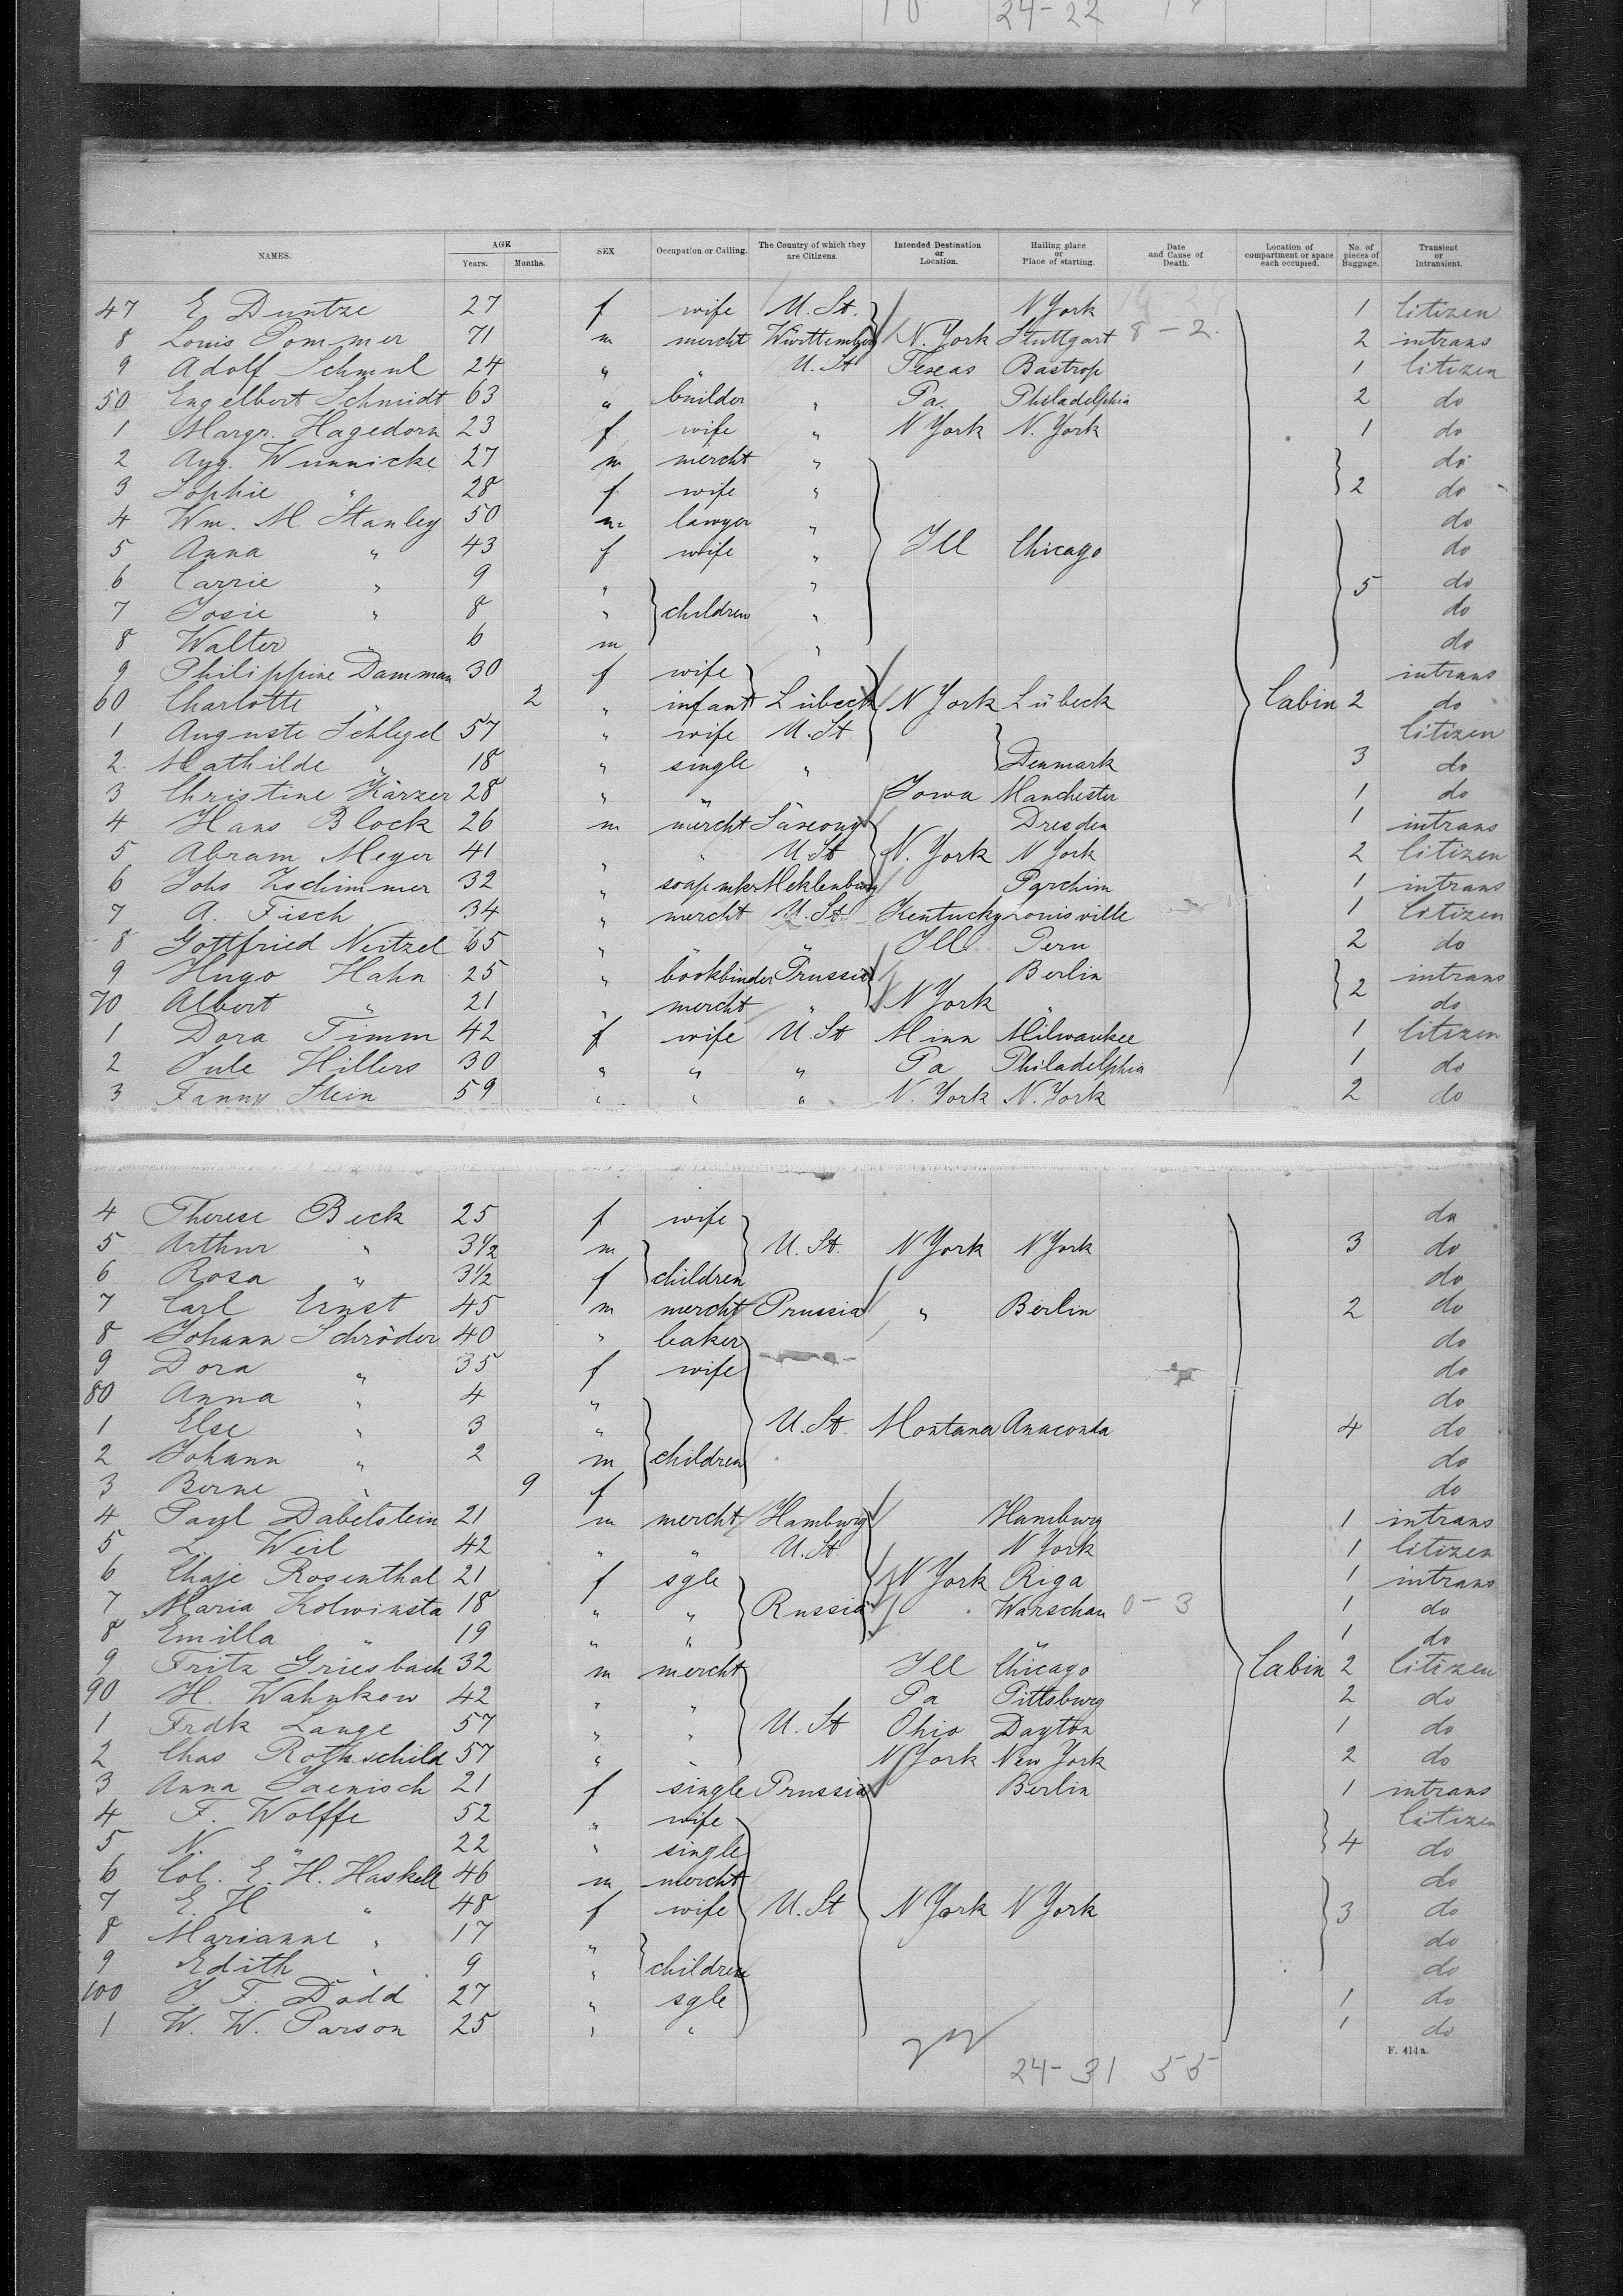 18 24-22
NAMES. AGE Years. Months. SEX Occupation or Calling. The Country of which they are Citizens. Intended Destination or Location. Hailing place or Place of starting. Date and Cause of Death. Location of compartment or space each occupied. No. of pieces of Baggage. Transient or Intransient.
47 E. Duntze 27 f wife U. St. N York 1 Citizen
8 Louis Pommer 71 m mercht Württemberg N. York Stuttgart 8-2 2 intrans
9 Adolf Schmul 24 " " U. St Texas Bastrop 1 Citizen
50 Engelbert Schmidt 63 " builder " Pa. Philadelphia 2 do
1 Margr. Hagedorn 23 f wife " N York N. York 1 do
2 Aug. Wunnicke 27 m mercht " do
3 Sophie " 28 f wife " 2 do
4 Wm. M Stanley 50 m lawyer " do
5 Anna " 43 f wife " Ill Chicago do
6 Carrie " 9 " " 5 do
7 Josie " 8 " children " do
8 Walter " 6 m " do
9 Philippine Damman 30 f wife intrans
60 Charlotte " 2 " infant Lübeck N York Lübeck Cabin 2 do
1 Auguste Schlegel 57 " wife U. St. Citizen
2 Mathilde " 18 " single " Denmark 3 do
3 Christine Kärzer 28 " " Iowa Manchester 1 do
4 Hans Block 26 m mercht Saxony Dresden 1 intrans
5 Abram Meyer 41 " " U. St N. York N York 2 Citizen
6 Johs Zschimmer 32 " soapmkr Meklenburg Parchim 1 intrans
7 A. Fisch 34 " mercht U. St Kentucky Louisville 1 Citizen
8 Gottfried Neitzel 65 " " Ill Peru 2 do
9 Hugo Hahn 25 " bookbinder Prussia Berlin intrans
70 Albert " 21 " mercht " N York " 2 do
1 Dora Timm 42 f wife U. St Minn Milwaukee 1 Citizen
2 Jule Hillers 30 " " " Pa Philadelphia 1 do
3 Fanny Stein 59 " " " N. York N. York 2 do
4 Therese Beck 25 f wife do
5 Arthur " 3 1/2 m U. St. N York N York 3 do
6 Rosa " 3 1/2 f children do
7 Carl Ernst 45 m mercht Prussia " Berlin 2 do
8 Johann Schröder 40 " beaker do
9 Dora " 35 f wife do
80 Anna " 4 " do
1 Else " 3 " U. St. Montana Anaconda 4 do
2 Johann " 2 m children do
3 Berne " 9 f do
4 Paul Dabelstein 21 m mercht Hamburg Hamburg 1 intrans
5 L. Weil 42 " " U. St N York 1 Citizen
6 Chaje Rosenthal 21 f sgle N York Riga 1 intrans
7 Maria Kolwinsta 18 " " Russia Warschau 0-3 1 do
8 Emilla " 19 " " " 1 do
9 Fritz Griesbach 32 m mercht Ill Chicago Cabin 2 Citizen
90 H. Wahnkow 42 " " Pa Pittsburg 2 do
1 Frdk Lange 57 " " U. St Ohio Dayton 1 do
2 Chas Rothschild 57 " " N York New York 2 do
3 Anna Jaenisch 21 f single Prussia Berlin 1 intrans
4 F. Wolffe 52 " wife Citizen
5 N. " 22 " single 4 do
6 Col. E. H. Haskell 46 m mercht do
7 E. H " 48 f wife U. St N York N York 3 do
8 Marianne " 17 " do
9 Edith " 9 " children do
100 J. F. Dodd 27 " sgle 1 do
1 W. W. Parson 25 " " 1 do
F. 414a.
24-31 55